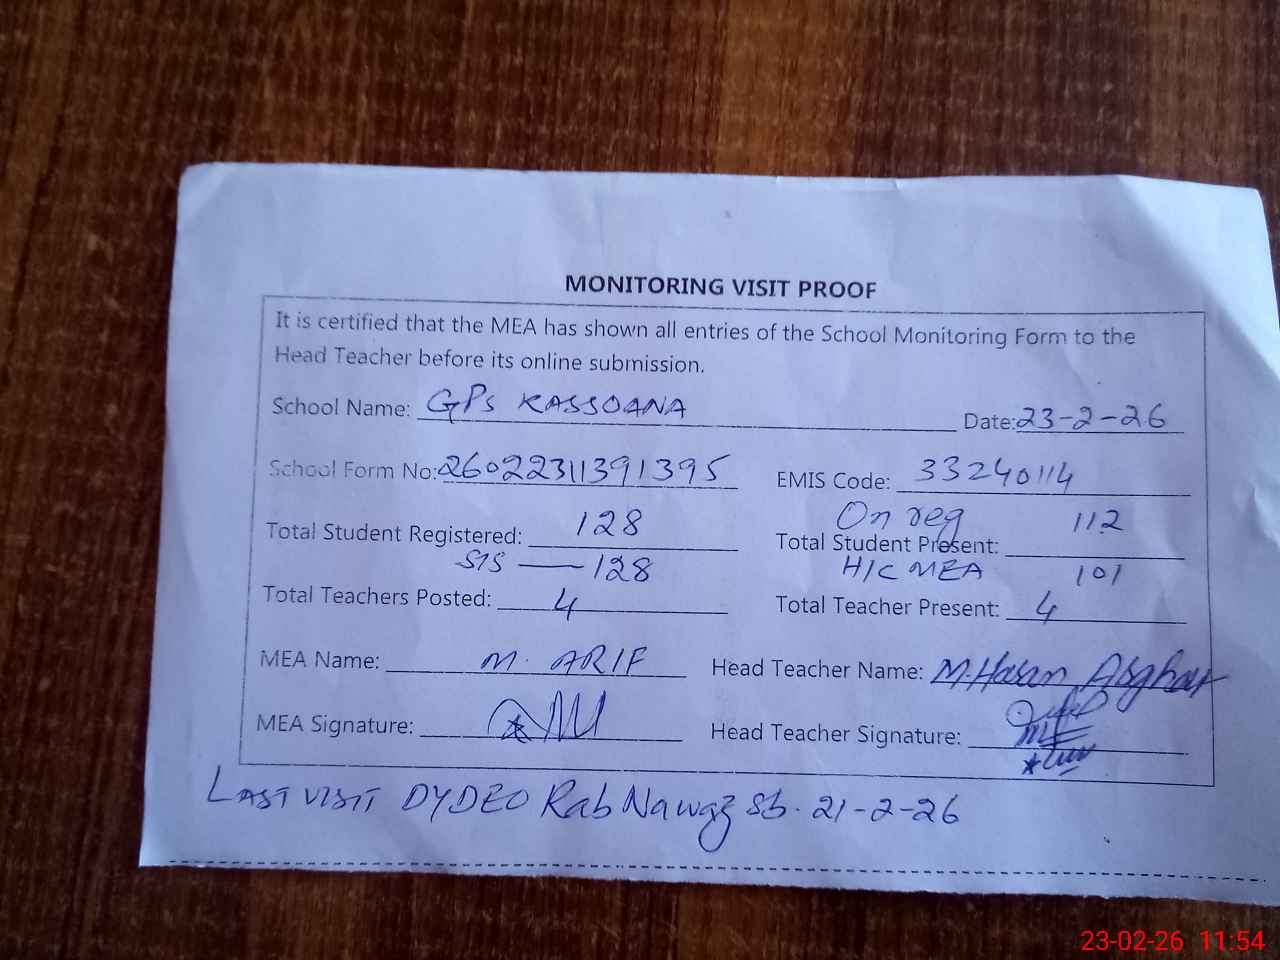 MONITORING VISIT PROOF
It is certified that the MEA has shown all entries of the School Monitoring Form to the
Head Teacher before its online submission.
School Name: GPS KASSOANA Date: 23-2-26
School Form No: 26022311391395 EMIS Code: 33240114
On reg 112
Total Student Registered: 128 Total Student Present:
SIS — 128 H/C MEA 101
Total Teachers Posted: 4 Total Teacher Present: 4
MEA Name: M. ARIF Head Teacher Name: M. Hasan Asghar
MEA Signature: Head Teacher Signature:
LAST VISIT DYDEO Rab Nawaz Sb. 21-2-26
23-02-26 11:54